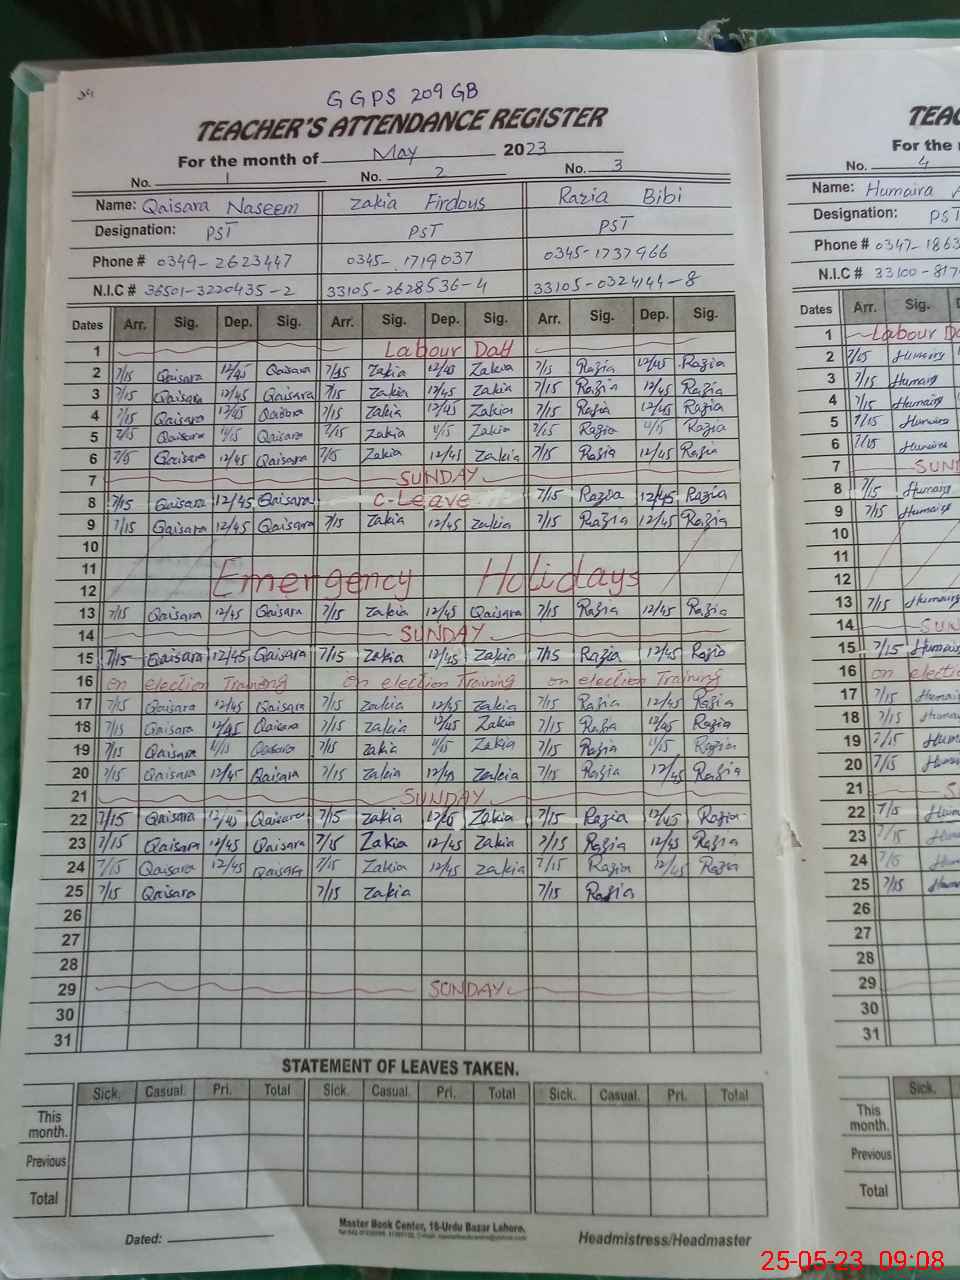 G GPS 209 GB
TEACHER'S ATTENDANCE REGISTER
For the month of May 2023
No. 1 No. 2 No. 3
Name: Qaisara Naseem Zakia Firdous Razia Bibi
Designation: PST PST PST
Phone # 0349-2623447 0345-1719037 0345-1737966
N.I.C # 36501-3220435-2 33105-2628536-4 33105-0324144-8
Dates Arr. Sig. Dep. Sig. Arr. Sig. Dep. Sig. Arr. Sig. Dep. Sig.
1 Labour Day
2 7/15 Qaisara 12/45 Qaisara 7/15 Zakia 12/45 Zakia 7/15 Razia 12/45 Razia
3 7/15 Qaisara 12/45 Qaisara 7/15 Zakia 12/45 Zakia 7/15 Razia 12/45 Razia
4 7/15 Qaisara 12/45 Qaisara 7/15 Zakia 12/45 Zakia 7/15 Razia 12/45 Razia
5 7/15 Qaisara 11/15 Qaisara 7/15 Zakia 11/15 Zakia 7/15 Razia 11/15 Razia
6 7/15 Qaisara 12/45 Qaisara 7/15 Zakia 12/45 Zakia 7/15 Razia 12/45 Razia
7 SUNDAY
8 7/15 Qaisara 12/45 Qaisara C-Leave 7/15 Razia 12/45 Razia
9 7/15 Qaisara 12/45 Qaisara 7/15 Zakia 12/45 Zakia 7/15 Razia 12/45 Razia
10
11 Emergency Holidays
12
13 7/15 Qaisara 12/45 Qaisara 7/15 Zakia 12/45 Qaisara 7/15 Razia 12/45 Razia
14 SUNDAY
15 7/15 Qaisara 12/45 Qaisara 7/15 Zakia 12/45 Zakia 7/15 Razia 12/45 Razia
16 on election Training on election Training on election Training
17 7/15 Qaisara 12/45 Qaisara 7/15 Zakia 12/45 Zakia 7/15 Razia 12/45 Razia
18 7/15 Qaisara 12/45 Qaisara 7/15 Zakia 12/45 Zakia 7/15 Razia 12/45 Razia
19 7/15 Qaisara 11/15 Qaisara 7/15 Zakia 11/15 Zakia 7/15 Razia 11/15 Razia
20 7/15 Qaisara 12/45 Qaisara 7/15 Zakia 12/45 Zakia 7/15 Razia 12/45 Razia
21 SUNDAY
22 7/15 Qaisara 12/45 Qaisara 7/15 Zakia 12/45 Zakia 7/15 Razia 12/45 Razia
23 7/15 Qaisara 12/45 Qaisara 7/15 Zakia 12/45 Zakia 7/15 Razia 12/45 Razia
24 7/15 Qaisara 12/45 Qaisara 7/15 Zakia 12/45 Zakia 7/15 Razia 12/45 Razia
25 7/15 Qaisara 7/15 Zakia 7/15 Razia
26
27
28
29 SUNDAY
30
31
STATEMENT OF LEAVES TAKEN.
Sick. Casual. Pri. Total Sick. Casual. Pri. Total Sick. Casual. Pri. Total
This month.
Previous
Total
Master Book Center, 16-Urdu Bazar Lahore.
Dated: Headmistress/Headmaster
TEAC
For the
No. 4
Name: Humaira
Designation: PST
Phone # 0347-1863
N.I.C # 33100-817
Dates Arr. Sig.
1 Labour Da
2 7/15 Humaira
3 7/15 Humaira
4 7/15 Humaira
5 7/15 Humaira
6 7/15 Humaira
7 SUN
8 7/15 Humaira
9 7/15 Humaira
10
11
12
13 7/15 Humaira
14 SUN
15 7/15 Humai
16 on electi
17 7/15 Humai
18 7/15 Humai
19 7/15 Hum
20 7/15 Hum
21 S
22 7/15 Hum
23 7/15 Hum
24 7/15 Hum
25 7/15 Hum
26
27
28
29
30
31
Sick.
This month.
Previous
Total
25-05-23 09:08